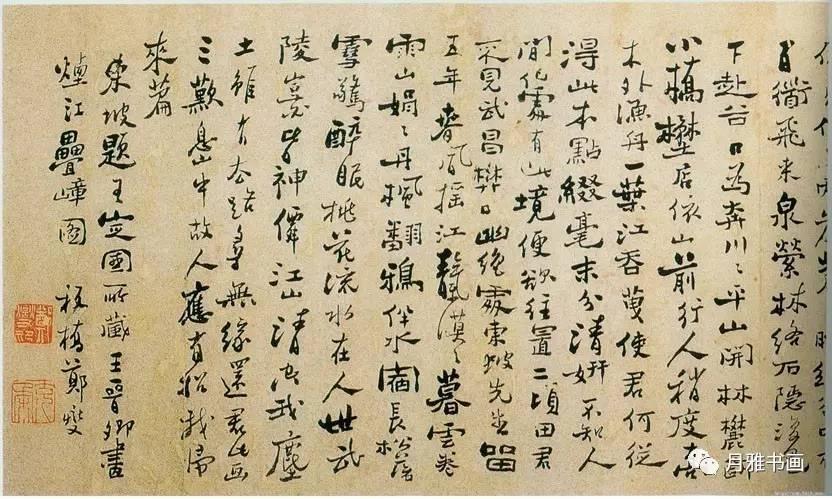 百衜飛来泉縈林絡石隱復見
下赴谷口為奔川〻平山開林麓斷
小橋壄店依山前行人稍度喬
木外漁舟一葉江吞使君何從
得此本點綴毫末分清妍不知人
間何處有此境便欲往置二頃田君
不見武昌樊口幽絕處東坡先生留
五年春風搖江漠〻暮雲卷
雨山娟〻丹楓翻鴉伴水宿長松落
雪驚醉眠桃花流水在人世武
陵豈皆神僊江山清空我塵
土雖有去路尋無緣還君此畫
三歎息山中故人應有招我歸
來篇
東坡題王定國所藏王晉卿畫
煙江疊嶂圖 板橋鄭燮
月雅书画